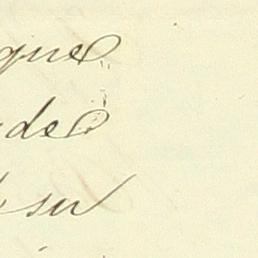 que
de
su